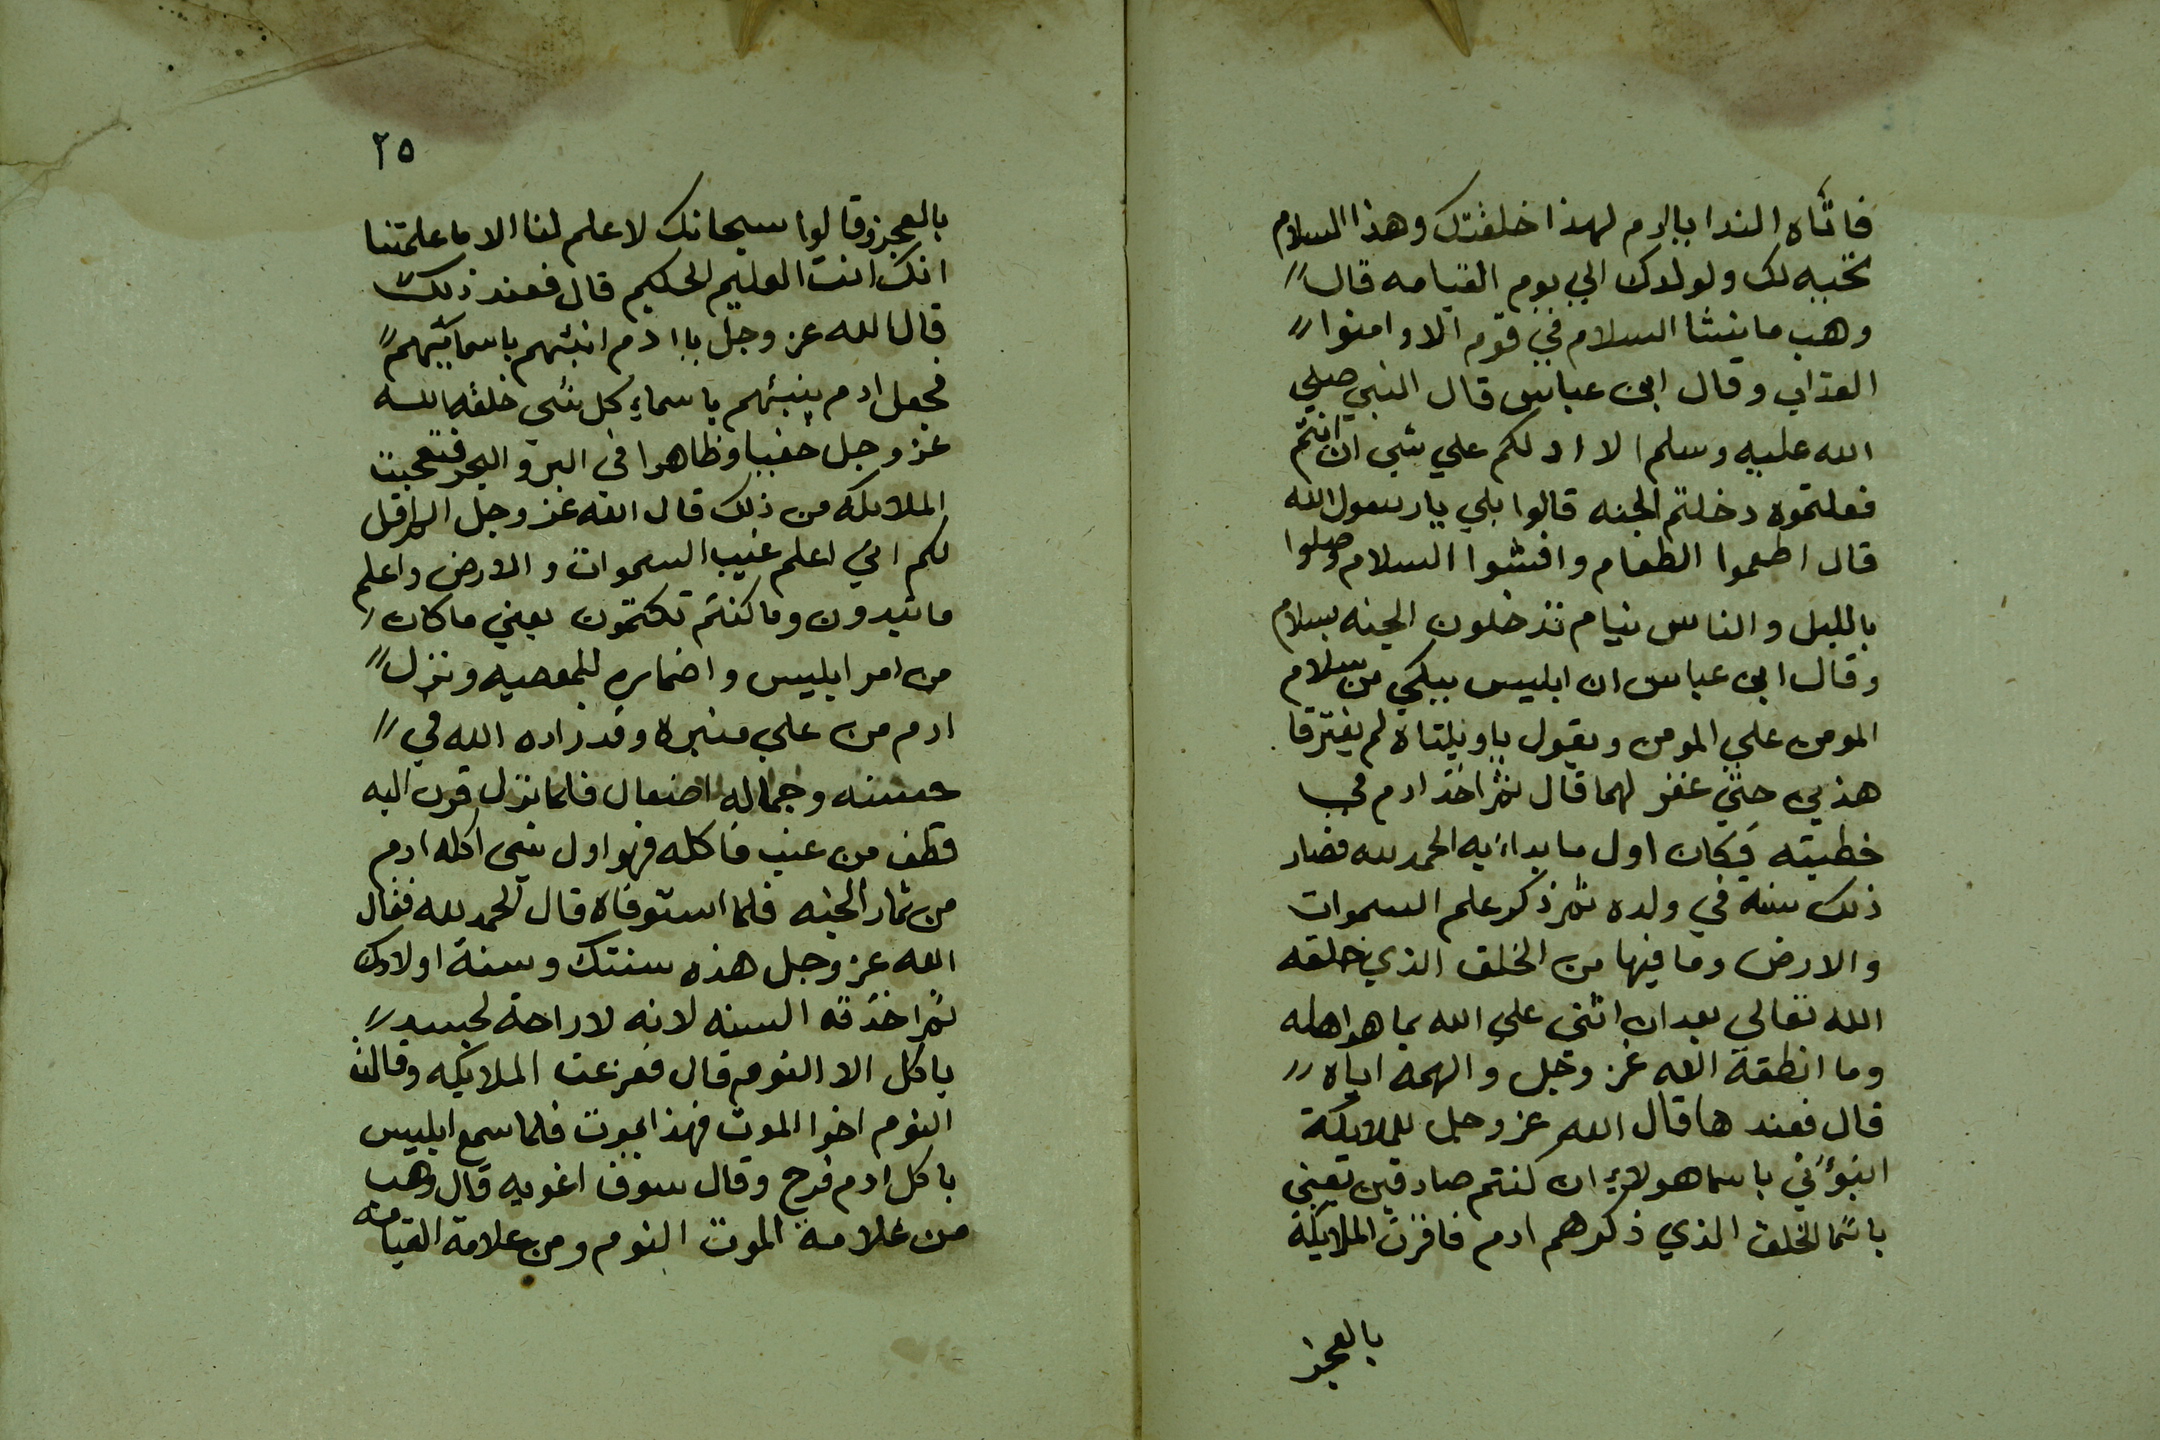 فاتاه الندا يادم لهذا خلقتك وهذا السلام
تحيه لك ولولدك الي يوم القيامه قال
وهب ما ينشا السلام في قوم الا وامنوا
العذاب وقال ابن عباس قال النبي صلي
الله عليه وسلم الا ادلكم علي شي ان انتم
فعلتموه دخلتم الجنه قالوا بلي يا رسول الله
قال اطعموا الطعام وافشوا السلام وصلوا
بالليل والناس نيام تدخلون الجنه بسلام
وقال ابن عباس ان ابليس يبكي من سلام
المومن علي المومن ويقول ياويلتاه لم يفترقا
هذين حتي غفر لهما قال ثم اخذ ادم في
خطبته فكان اول ما بداء به الحمد لله فصار
ذلك سنه في ولده ثم ذكر علم السموات
والارض وما فيها من الخلق الذي خلقه
الله تعالى بعد ان اثنى علي الله بما هو اهله
وما انطقه الله عز وجل والهمه اياه
قال فعندها قال الله عز وجل للملايكة
انبؤني باسما هولاء ان كنتم صادقين يعني
باسما الخلق الذي ذكرهم ادم فاقرت الملايكة
بالعجز
٢٥
بالعجز وقالوا سبحانك لا علم لنا الا ما علمتنا
انك انت العليم الحكيم قال فعند ذلك
قال الله عز وجل يا ادم انبئهم باسمائهم
فجعل ادم ينبئهم باسماء كل شى خلقه الله
عز وجل خفيا وظاهرا فى البر والبحر فتعجبت
الملايكه من ذلك قال الله عز وجل الم اقل
لكم اني اعلم غيب السموات والارض واعلم
ما تبدون وما كنتم تكتمون يعني ما كان
من امر ابليس واضماره للمعصيه ونزل
ادم من علي منبره وقد زاده الله في
حسنه وجماله اضعاف فلما نزل قرب اليه
قطف من عنب فاكله فهو اول شى اكله ادم
من ثمار الجنه فلما استوفاه قال الحمد لله فقال
الله عز وجل هذه سنتك وسنة اولادك
ثم اخذته السنه لانه لا راحة لجسد
ياكل الا النوم قال ففزعت الملايكه وقالت
النوم اخوا الموت فهذا يموت فلما سمع ابليس
باكل ادم فرح وقال سوف اغويه قال وهب
من علامة الموت النوم ومن علامة القيامه